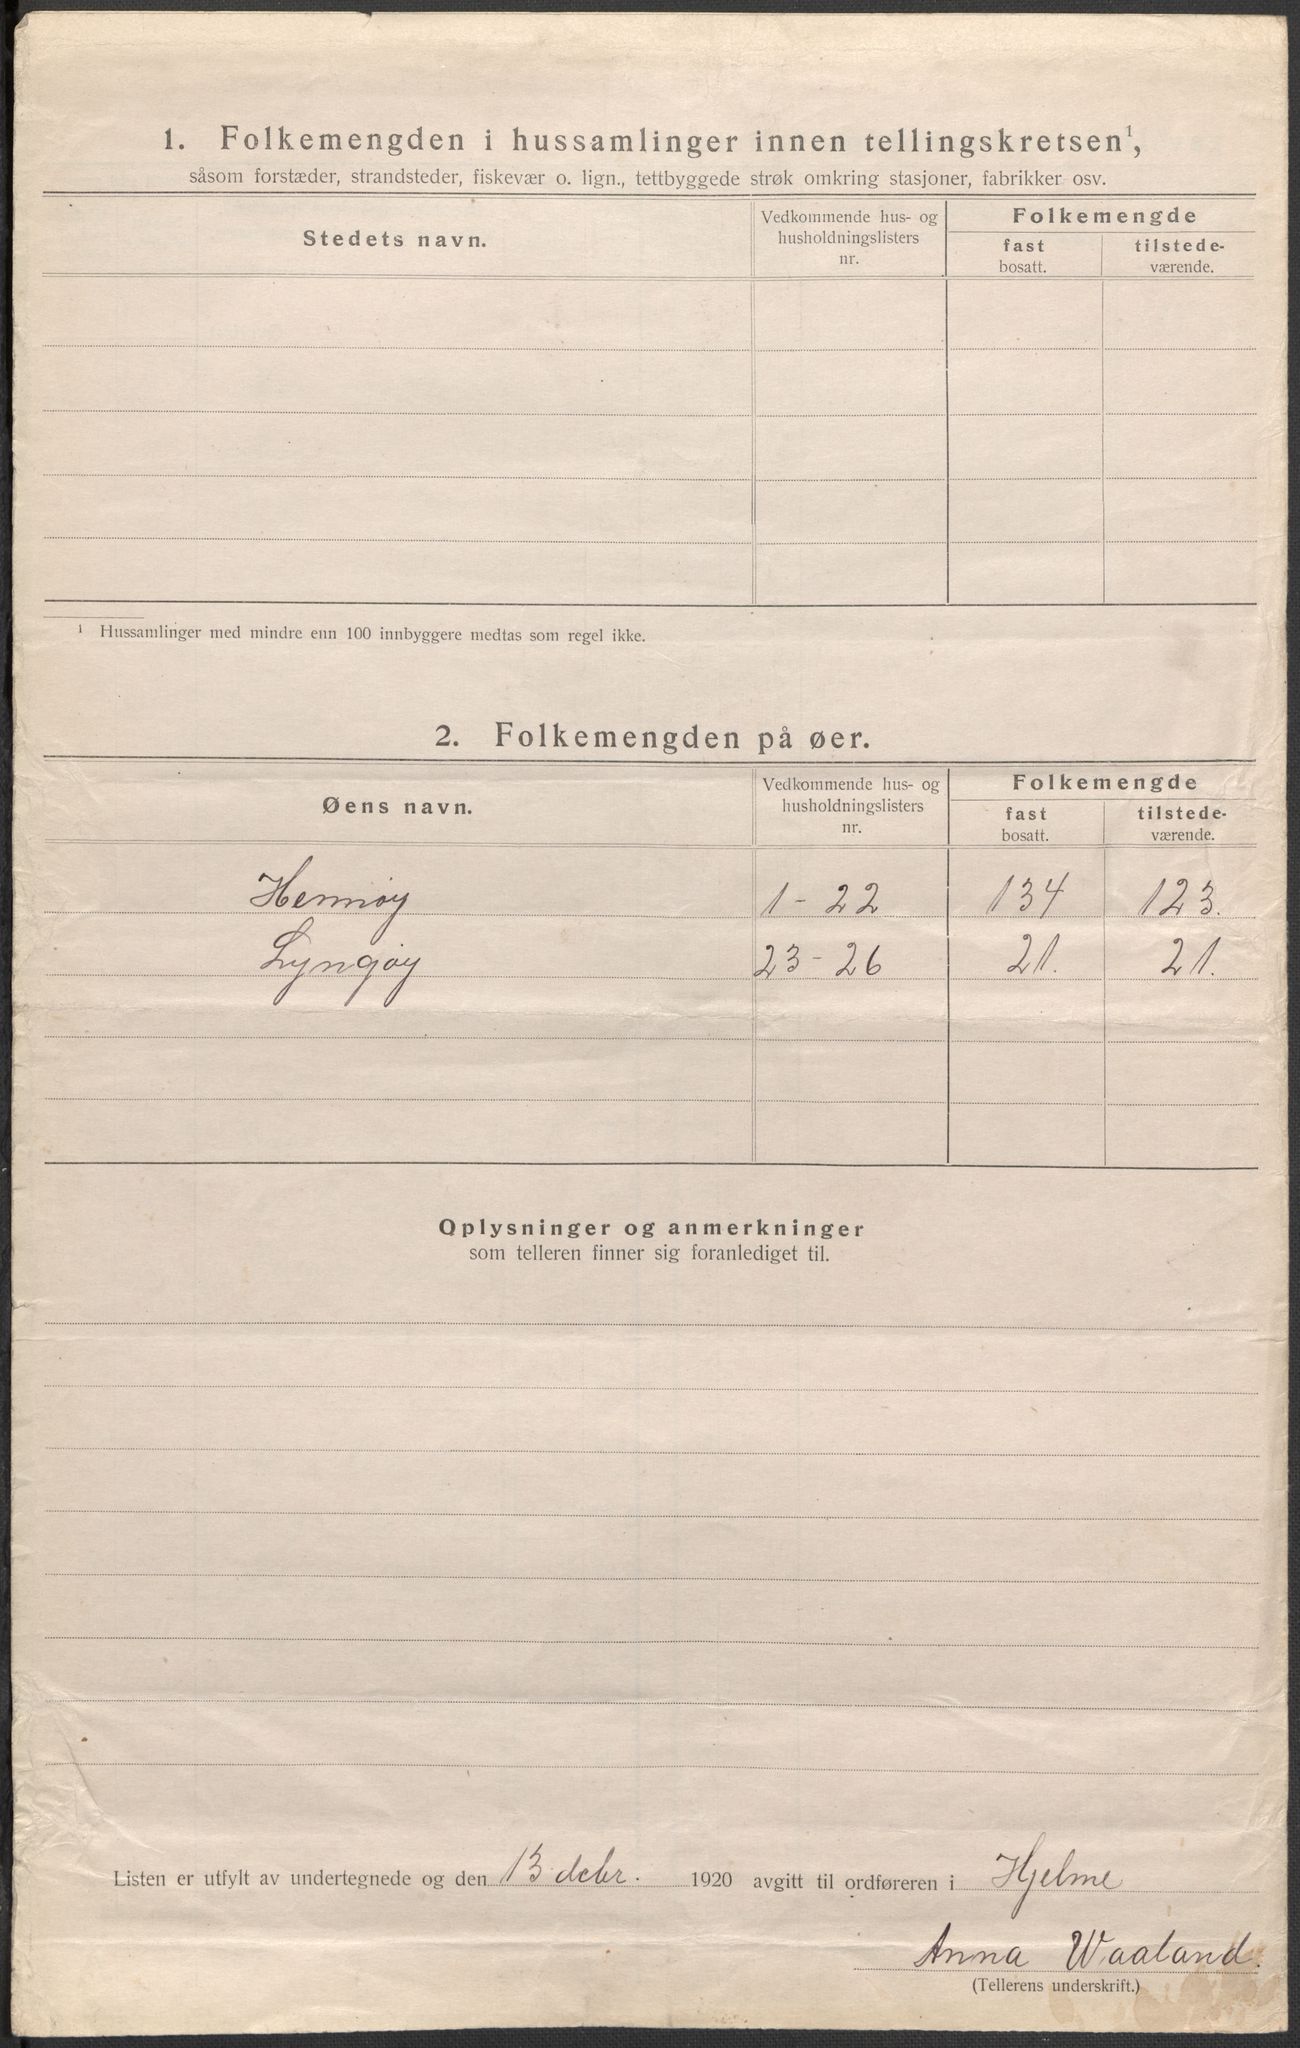 1. Folkemengden i hussamlinger innen tellingskretsen¹,
såsom forstæder, strandsteder, fiskevær o. lign., tettbyggede strøk omkring stasjoner, fabrikker osv.
Stedets navn.
Vedkommende hus- og
husholdningslisters
nr.
Folkemengde
fast
bosatt.
tilstede-
værende.
¹ Hussamlinger med mindre enn 100 innbyggere medtas som regel ikke.
2. Folkemengden på øer.
Øens navn.
Vedkommende hus- og
husholdningslisters
nr.
Folkemengde
fast
bosatt.
tilstede-
værende.
Hernøy 1 - 22 134 123.
Lyngøy 23 - 26 21. 21.
Oplysninger og anmerkninger
som telleren finner sig foranlediget til.
Listen er utfylt av undertegnede og den 13 debr. 1920 avgitt til ordføreren i Hjelme
Anna Waaland.
(Tellerens underskrift.)